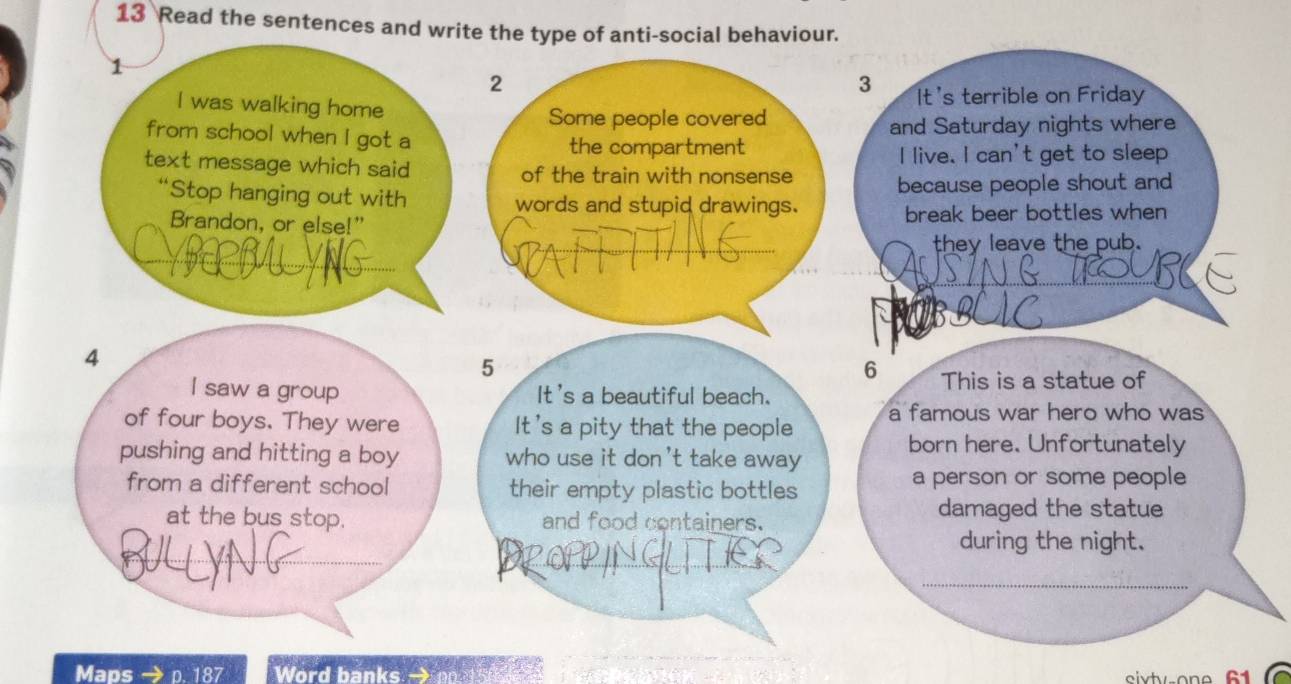 13 Read the sentences and write the type of anti-social behaviour.
1
I was walking home
from school when I got a
text message which said
“Stop hanging out with
Brandon, or else!”
CYBERBULLYNG
2
Some people covered
the compartment
of the train with nonsense
words and stupid drawings.
GRAFFITING
3
It's terrible on Friday
and Saturday nights where
I live. I can't get to sleep
because people shout and
break beer bottles when
they leave the pub.
CAUSING TROUBLE
4
I saw a group
of four boys. They were
pushing and hitting a boy
from a different school
at the bus stop.
BULLYNG
5
It's a beautiful beach.
It's a pity that the people
who use it don't take away
their empty plastic bottles
and food containers.
DROPPING LITTER
6
This is a statue of
a famous war hero who was
born here. Unfortunately
a person or some people
damaged the statue
during the night.
Maps → p. 187
Word banks → pp.
sixty-one 61